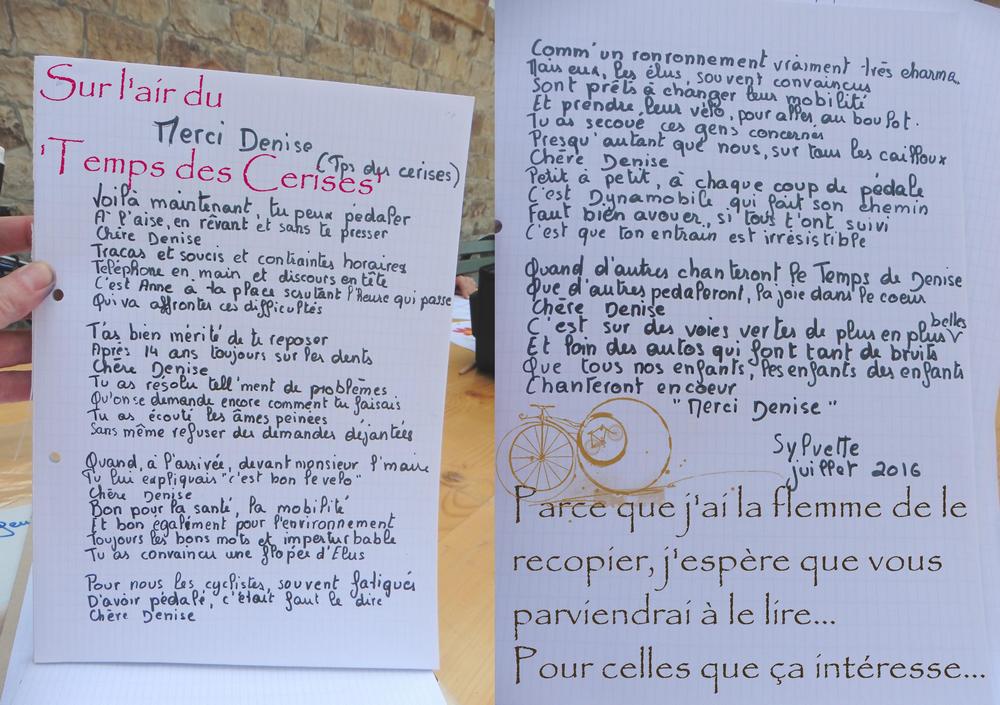 Sur l'air du
Merci Denise
(Tps des cerises)
'Temps des Cerises'
Voilà maintenant, tu peux pédaler
A l'aise, en rêvant et sans te presser
Chère Denise
Tracas et soucis et contraintes horaires
Téléphone en main et discours en tête
C'est Anne à ta place scrutant l'heure qui passe
Qui va affronter ces difficultés
T'as bien mérité de te reposer
Après 14 ans toujours sur les dents
Chère Denise
Tu as résolu tell'ment de problèmes
Qu'on se demande encore comment tu faisais
Tu as écouté les âmes peinées
Sans même refuser des demandes déjantées
Quand, à l'arrivée, devant monsieur l'maire
Tu lui expliquais "c'est bon le vélo"
Chère Denise
Bon pour la santé, la mobilité
Et bon également pour l'environnement
Toujours les bons mots et imperturbable
Tu as convaincu une flopée d'Elus
Pour nous les cyclistes, souvent fatigués
D'avoir pédalé, c'était faut le dire
Chère Denise
Comm'un ronronnement vraiment très charma
Mais eux, les élus, souvent convaincus
Sont prêts à changer leur mobilité
Et prendre leur vélo, pour aller au boulot.
Tu as secoué ces gens concernés
Presqu'autant que nous, sur tous les cailloux
Chère Denise
Petit à petit, à chaque coup de pédale
C'est Dynamobile qui fait son chemin
Faut bien avouer, si tous t'ont suivi
C'est que ton entrain est irrésistible
Quand d'autres chanteront le Temps de Denise
Que d'autres pédaleront, la joie dans le coeur
Chère Denise
C'est sur des voies vertes de plus en plus belles
Et loin des autos qui font tant de bruits
Que tous nos enfants, les enfants des enfants
Chanteront en coeur
"Merci Denise"
Sylvette
juillet 2016
Parce que j'ai la flemme de le
recopier, j'espère que vous
parviendrai à le lire...
Pour celles que ça intéresse...